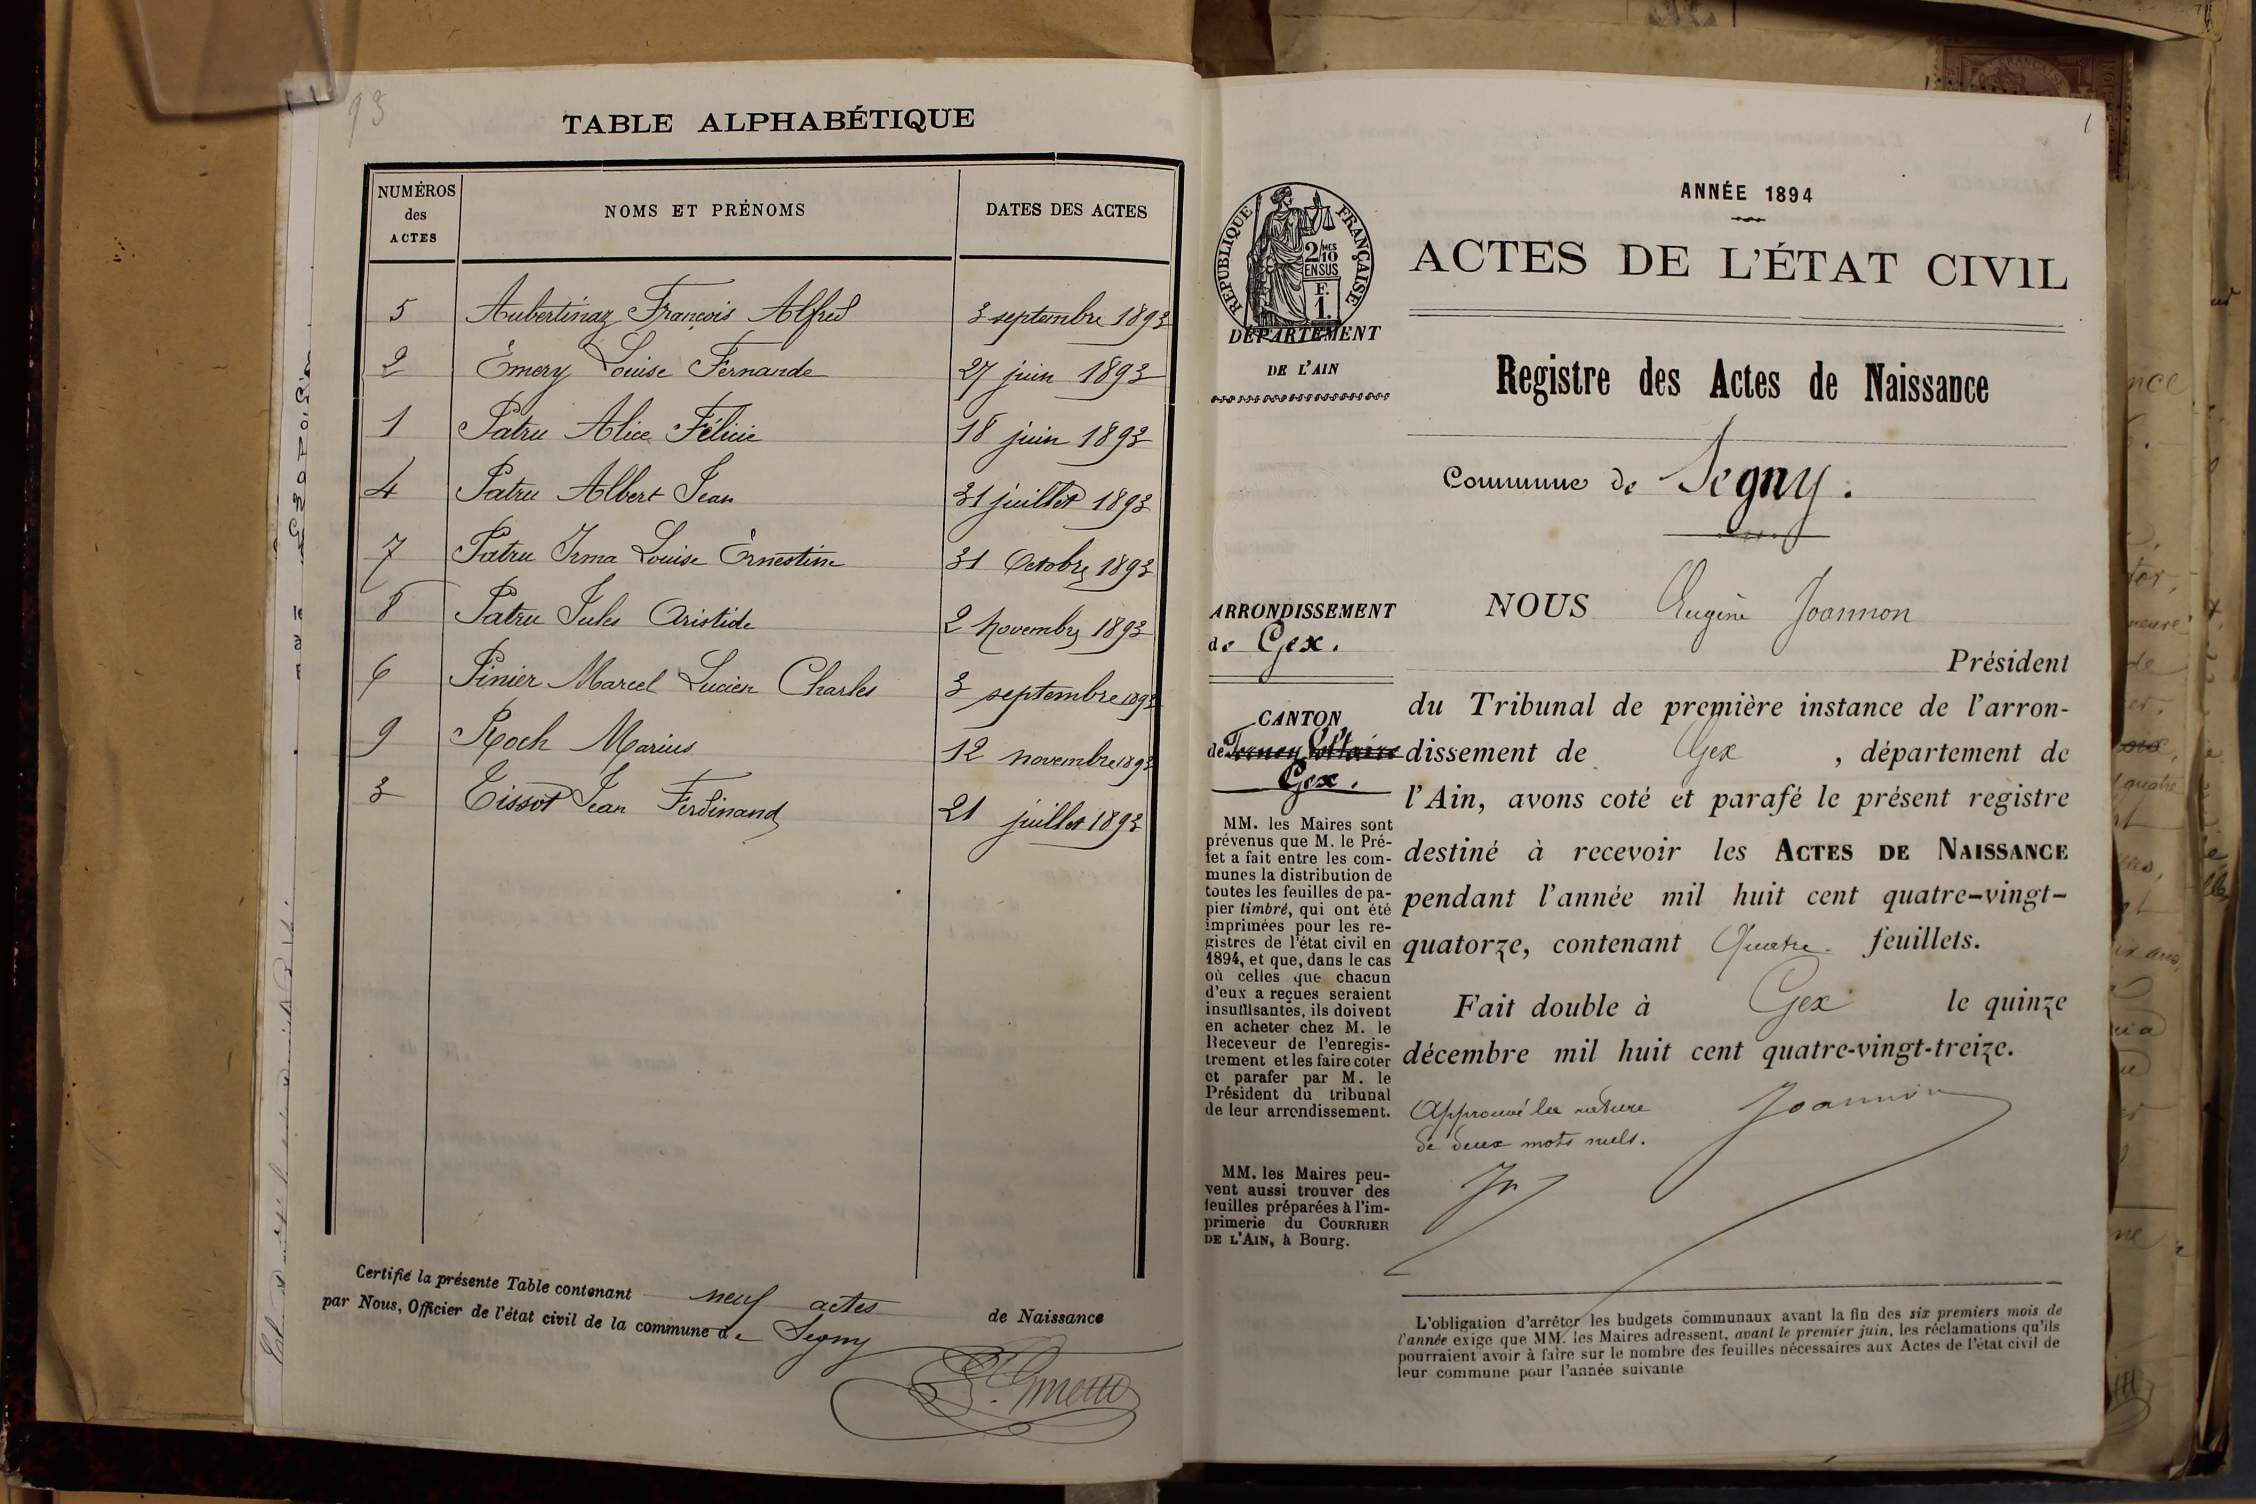 93
TABLE ALPHABÉTIQUE
NUMÉROS des ACTES NOMS ET PRÉNOMS DATES DES ACTES
5 Aubertinaz François Alfred 3 septembre 1893
2 Émery Louise Fernande 27 juin 1893
1 Patru Alice Félicie 18 juin 1893
4 Patru Albert Jean 31 juillet 1893
7 Patru Irma Louise Ernestine 31 Octobre 1893
8 Patru Jules Aristide 2 Novembre 1893
6 Pinier Marcel Lucien Charles 3 septembre 1893
9 Roch Marius 12 novembre 1893
3 Tissot Jean Ferdinand 21 juillet 1893
Certifié la présente Table contenant neuf actes de Naissance
par Nous, Officier de l'état civil de la commune de Segny
1
RÉPUBLIQUE FRANÇAISE
2/10 MES
EN SUS
F.
1.
DÉPARTEMENT
DE L'AIN
ARRONDISSEMENT
de Gex.
CANTON
de Ferney Voltaire
Gex.
MM. les Maires sont
prévenus que M. le Pré-
fet a fait entre les com-
munes la distribution de
toutes les feuilles de pa-
pier timbré, qui ont été
imprimées pour les re-
gistres de l'état civil en
1894, et que, dans le cas
où celles que chacun
d'eux a reçues seraient
insuffisantes, ils doivent
en acheter chez M. le
Receveur de l'enregis-
trement et les faire coter
et parafer par M. le
Président du tribunal
de leur arrondissement.
MM. les Maires peu-
vent aussi trouver des
feuilles préparées à l'im-
primerie du COURRIER
DE L'AIN, à Bourg.
ANNÉE 1894
ACTES DE L'ÉTAT CIVIL
Registre des Actes de Naissance
Commune de Segny.
NOUS Eugène Joannon
Président
du Tribunal de première instance de l'arron-
dissement de Gex, département de
l'Ain, avons coté et parafé le présent registre
destiné à recevoir les ACTES DE NAISSANCE
pendant l'année mil huit cent quatre-vingt-
quatorze, contenant Quatre feuillets.
Fait double à Gex le quinze
décembre mil huit cent quatre-vingt-treize.
Approuvé la rature
de deux mots nuls.
Joannon
L'obligation d'arrêter les budgets communaux avant la fin des six premiers mois de
l'année exige que MM. les Maires adressent, avant le premier juin, les réclamations qu'ils
pourraient avoir à faire sur le nombre des feuilles nécessaires aux Actes de l'état civil de
leur commune pour l'année suivante